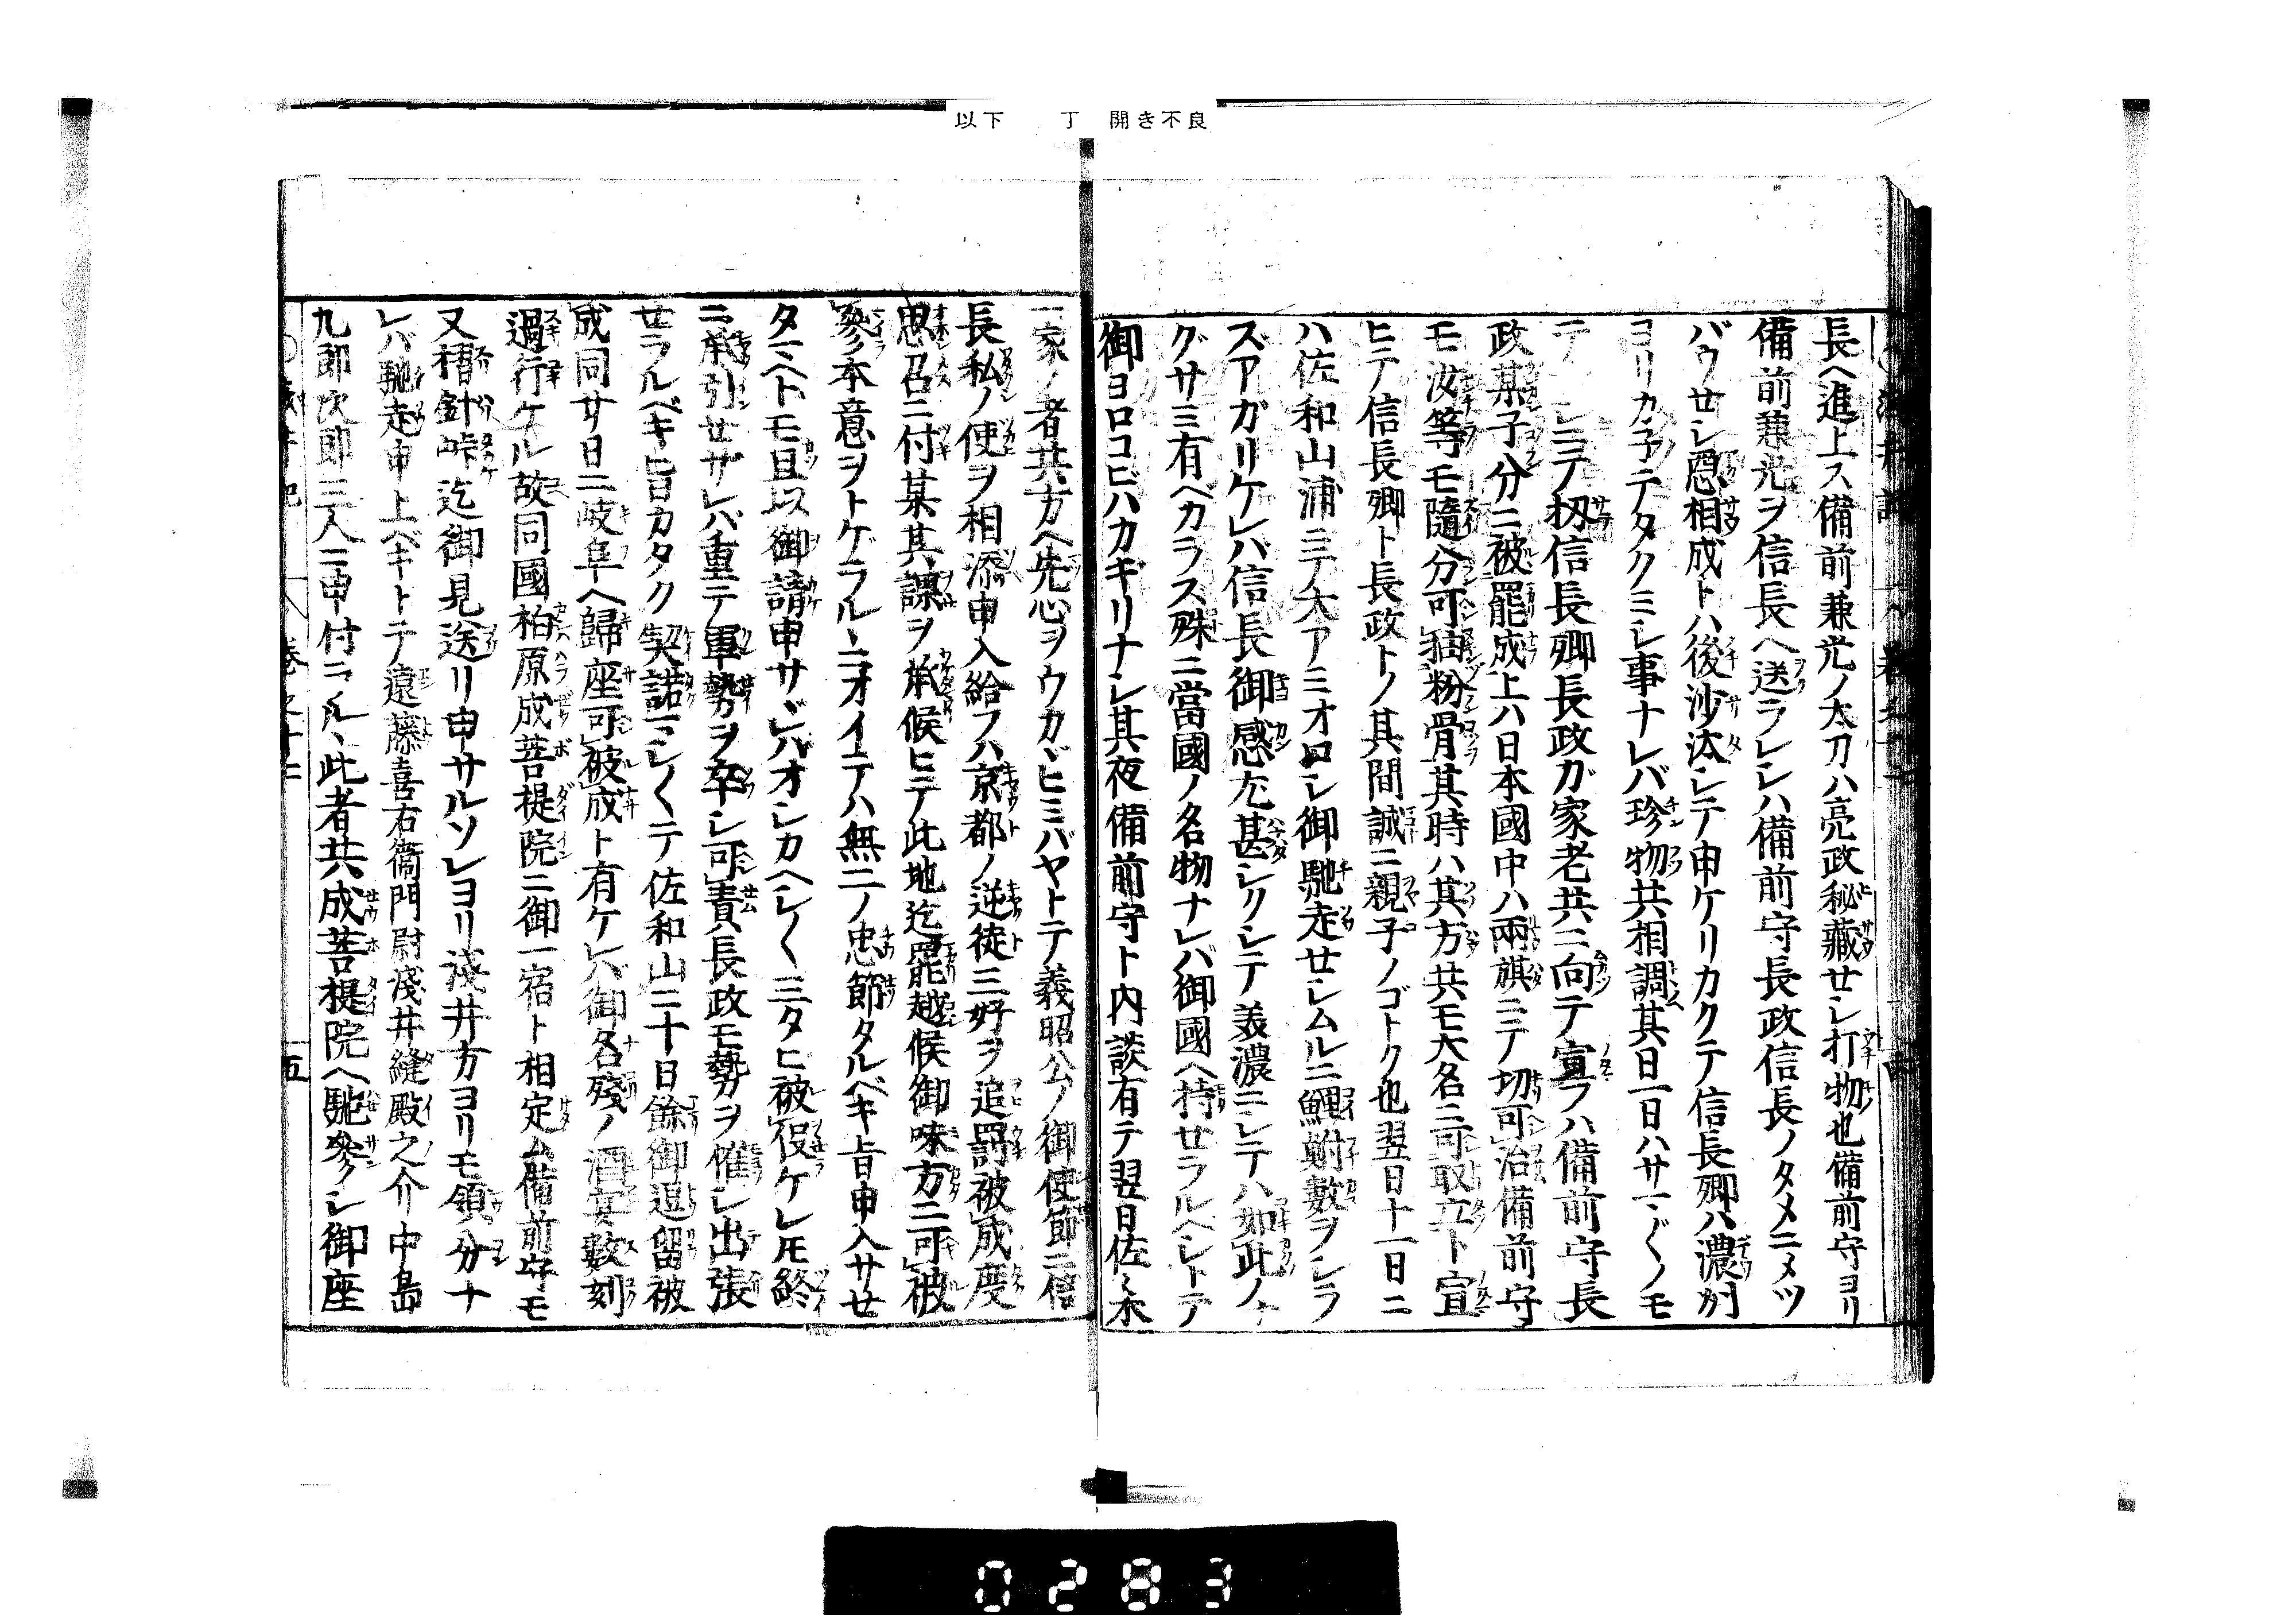 以下　丁　開き不良
長ヘ進上ス備前兼光ノ太刀ハ亮政秘藏セシ打物也備前守ヨリ
備前兼光ヲ信長ヘ送ラレシハ備前守長政信長ノタメニメツ
バウセシ隠相成トハ後沙汰シテ申ケリカクテ信長卿ハ濃州
ヨリカ子テタクミシ事ナレバ珍物共相調其日一日ハサマ〴〵ノモ
テ シニテ扨信長卿長政ガ家老共ニ向テ宣フハ備前守長
政某子分ニ被罷成上ハ日本國中ハ兩旗ニテ切可治備前守
モ汝等モ隨分可抽粉骨其時ハ其方共モ大名ニ可取立ト宣
ヒテ信長卿ト長政トノ其間誠ニ親子ノゴトク也翌日十一日ニ
ハ佐和山浦ニテ大アミオロシ御馳走セシムルニ鯉鮒數ヲシラ
ズアガリケレバ信長御感尤甚シクシテ美濃ニシテハ如此ノナ
グサミ有ヘカラス殊ニ當國ノ名物ナレバ御國ヘ持セラルヘシトテ
御ヨロコビハカギリナシ其夜備前守ト内談有テ翌日佐々木
一家ノ者共方ヘ先心ヲウカヾヒミバヤトテ義昭公ノ御使節ニ信
長私ノ使ヲ相添申入給フハ京都ノ逆徒三好ヲ追罰被成度
思召ニ付某其謀ヲ承候ヒテ此地迄罷越候御味方ニ可被
參本意ヲトゲラルヽニオイテハ無二ノ忠節タルベキ旨申入サセ
タマヘトモ且以御請申サヾレバオシカヘシ〳〵三タビ被仰ケレ𪜈終
ニ承引セザレバ重テ軍勢ヲ卒シ可責長政モ勢ヲ催シ出張
セラルベキ旨カタク契諾マシ〳〵テ佐和山ニ十日餘御逗留被
成同廿日ニ岐阜ヘ歸座可被成ト有ケレバ御名殘ノ酒宴數刻
過行ケル故同國柏原成菩提院ニ御一宿ト相定ム備前守モ
又摺針峠迄御見送リ申サルソレヨリ淺井方ヨリモ領分ナ
レバ馳走申上ベキトテ遠藤喜右衞門尉淺井縫殿之介中島
九郎次郎三人ニ申付ラルヽ此者共成菩提院ヘ馳參シ御座
卷之十二
五
0283